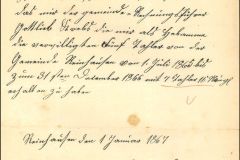 das mir der Gemeinde-Rechnungsführer
Gottlieb die mir als Hebamme
die verwilligten fünf Thaler von der
Gemeinde Steinhausen vom 1. Juli 1866 bis
zum 31sten Dezember 1866 mit 7 Thaler
erhalten zu habe
Steinhausen den 1 Januar 1867